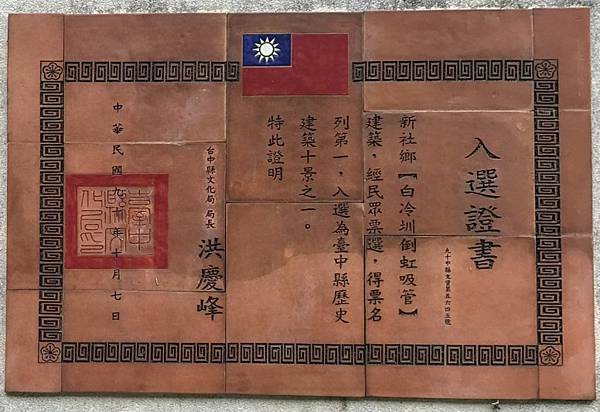 入選證書
九十中縣文資第五六四五號
新社鄉【白冷圳倒虹吸管】
建築，經民眾票選，得票名
列第一，入選為臺中縣歷史
建築十景之一。
特此證明
台中縣文化局 局長 洪慶峰
中華民國九十年十月七日